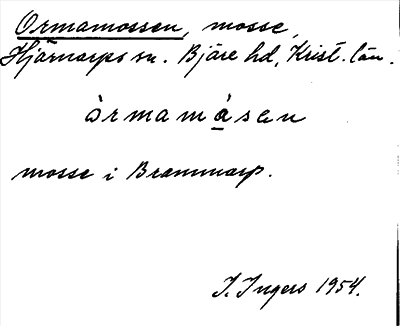 Ormamossen, mosse,
Hjärnarps sn. Bjäre hd, Krist. län.
òrmamåsen
mosse i Brammarp.
I. Ingers 1954.